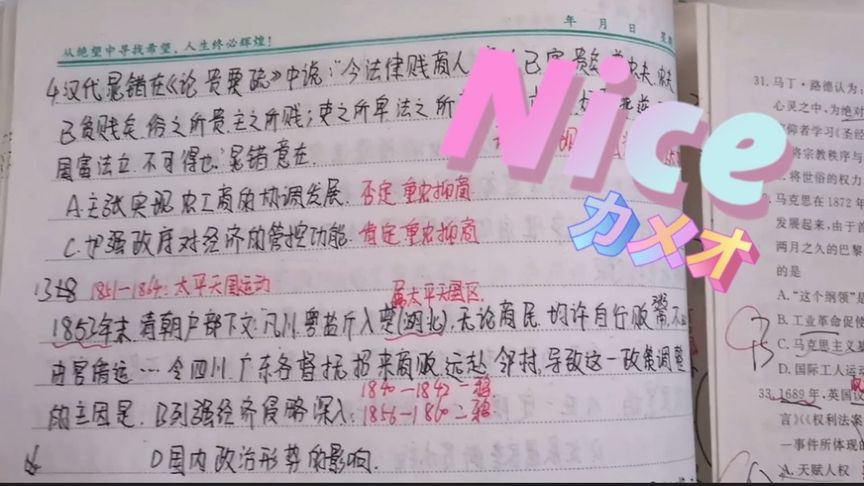 年 月 日 星
从绝望中寻找希望，人生终必辉煌！
4.汉代晁错在《论贵粟疏》中说："今法律贱商人
已贫贱矣。俗之所贵,主之所贱;吏之所卑,法之所
国富法立,不可得也."晁错意在
A.主张实现农工商的协调发展. 否定重农抑商
C.加强政府对经济的管控功能. 肯定重农抑商
1851—1864:太平天国运动
属太平天国区.
1852年末,清朝户部下文:凡川、粤盐斤入楚(湖北),无论商民,均许自行贩鬻,不
由官借运…令四川、广东各督抚招来商贩,远赴邻村,导致这一政策调整
的主因是. B列强经济侵略深入.
1840—1842一鸦
1856—1860二鸦
D国内政治形势的影响.
Nice
カメオ
31. 马丁·路德认为:
心灵之中,为绝对
仰者学习《圣经
将宗教秩序与
将世俗的权力
马克思在 1872 年
发展起来,由于首
两月之久的巴黎
的是
A. "这个纲领"
B. 工业革命促使
C. 马克思主义
D. 国际工人运动
33. 1689 年,英国议
言》《权利法案
一事件所体现的
A. 天赋人权